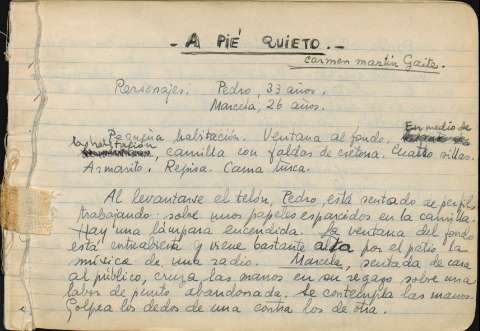 - A PIÉ QUIETO. -
Carmen Martín Gaite.
Personajes: Pedro, 33 años.
Marcela, 26 años.
Pequeña habitación. Ventana al fondo. En medio de
la habitación, camilla con faldas de cretona. Cuatro sillas.
Armarito. Repisa. Cama turca.
Al levantarse el telón, Pedro, está sentado de perfil
trabajando sobre unos papeles esparcidos en la camilla.
Hay una lámpara encendida. La ventana del fondo
está entreabierta y viene bastante alta por el patio la
música de una radio. Marcela, sentada de cara
al público, cruza las manos en su regazo sobre una
labor de punto abandonada. Se contempla las manos.
Golpea los dedos de una contra los de otra.